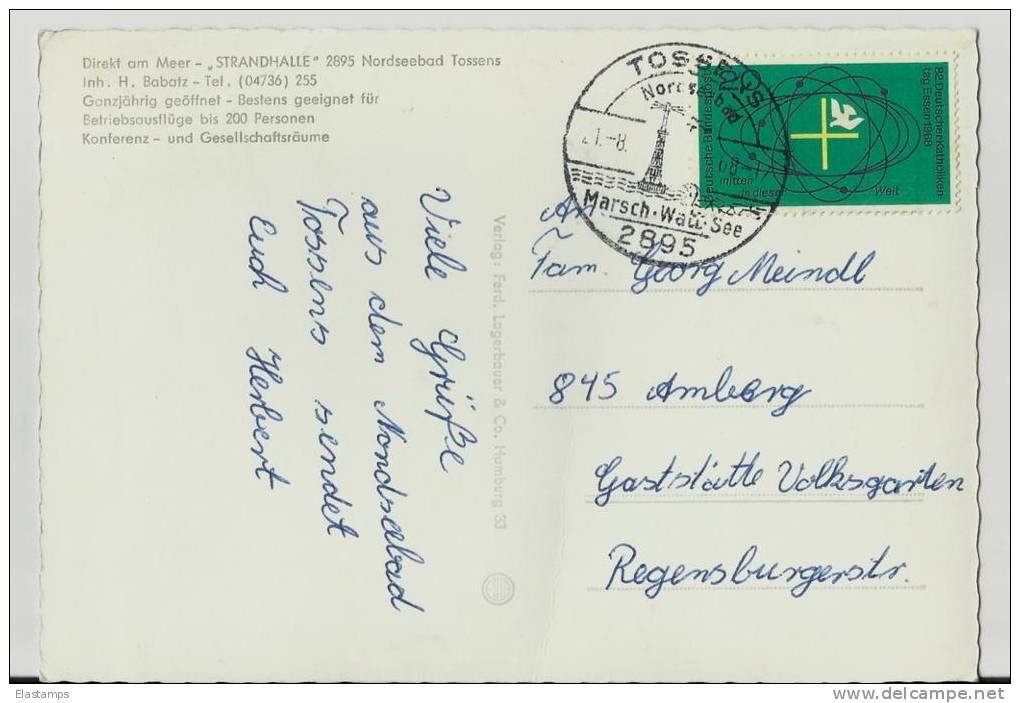 Direkt am Meer – „STRANDHALLE" 2895 Nordseebad Tossens
Inh. H. Babatz – Tel. (04736) 255
Ganzjährig geöffnet – Bestens geeignet für
Betriebsausflüge bis 200 Personen
Konferenz – und Gesellschaftsräume
Viele Grüße
aus dem Nordseebad
Tossens sendet
Euch Herbert
Verlag: Ferd. Lagerbauer & Co. Hamburg 33
TOSSENS
Nordseebad
21.-8.
Marsch·Watt·See
2895
Deutsche Bundespost
82. Deutscher Katholiken-
tag Essen 1968
mitten
in dieser
Welt
An
Fam. Georg Meindl
845 Amberg
Gaststätte Volksgarten
Regensburgerstr.
Elastamps
www.delcampe.net